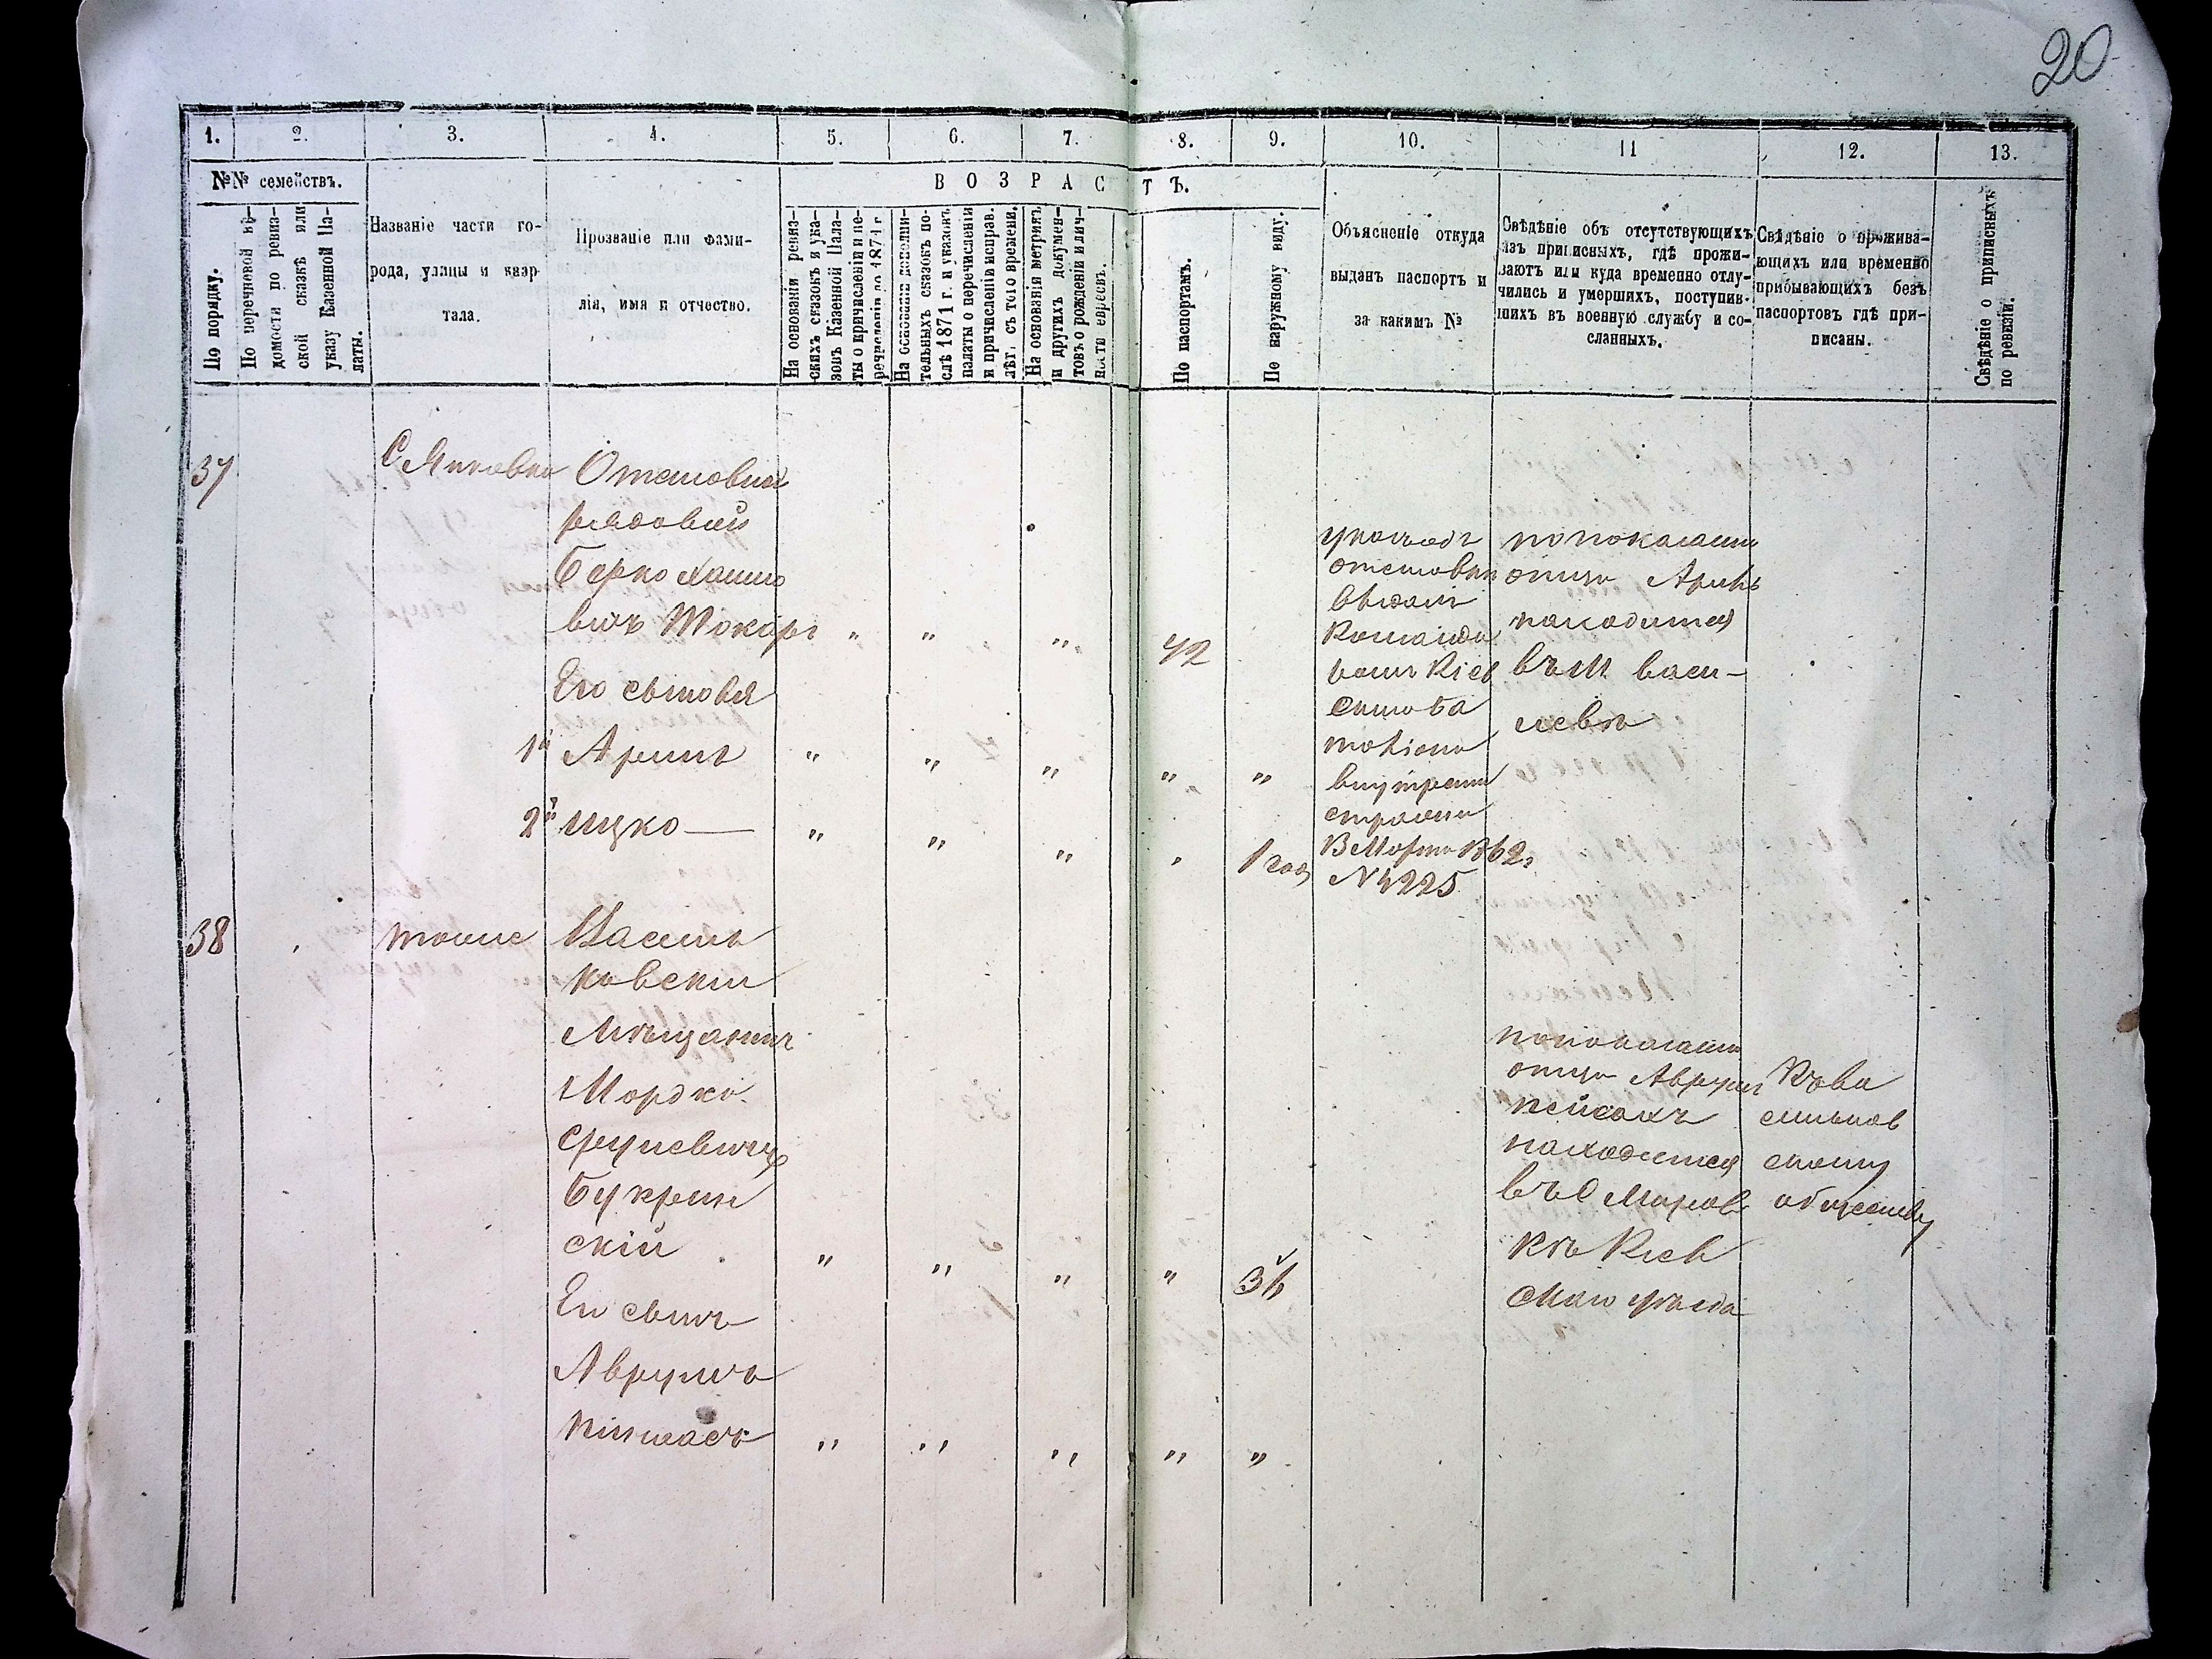 20
1. 2. 3. 4. 5. 6. 7. 8. 9. 10. 11 12. 13.
№№ семействъ.
ВОЗРАСТЪ.
По порядку.
По перечневой вѣ-
домости по ревиз-
ской сказкѣ или
указу Казенной Па-
латы.
Названіе части го-
рода, улицы и квар-
тала.
Прозваніе или фами-
лія, имя и отчество.
На основаніи ревиз-
скихъ сказокъ и ука-
зовъ Казенной Пала-
ты о причисленіи и пе-
речисленіи до 1871 г.
На основаніи дополни-
тельныхъ сказокъ по-
слѣ 1871 г. и указокъ
палаты о перечисленіи
и причисленіи исправ.
лѣт. съ того времени.
На основаніи метрикъ
и другихъ докумен-
товъ о рожденіи и лич-
ности евреевъ.
По паспортамъ.
По наружному виду.
Объясненіе откуда
выданъ паспортъ и
за какимъ №
Свѣдѣніе объ отсутствующихъ
изъ приписныхъ, гдѣ прожи-
ваютъ или куда временно отлу-
чились и умершихъ, поступив-
шихъ въ военную службу и со-
сланныхъ.
Свѣдѣніе о прожива-
ющихъ или временно
прибывающихъ безъ
паспортовъ гдѣ при-
писаны.
Свѣдѣніе о приписныхъ
по ревизіи.
37
Отставной
рядовый
Берко Хаимо
вичъ Токарь " " " 42
Его сыновья
1й Арунъ " " " " "
2й Ицко — " " " " 1 год
отставки
выдан
Командо
ромъ Кіев
скаго ба
таліона
внутрен
стражи
№ 4225
по показанию
отца Арунъ
находится
въ м Васи-
левѣ
38 тоже Василь
ковскій
Мѣщанинъ
Мордко
СруLевичъ
Букрин
скій " " " " 36
Его сынъ
Аврумъ
Пинхасъ " " " " "
по показанию
отца Аврумъ
находится
въ С Маров
кѣ Кіев
скаго уѣзда
Къ Ва
сильков
скому
обществу